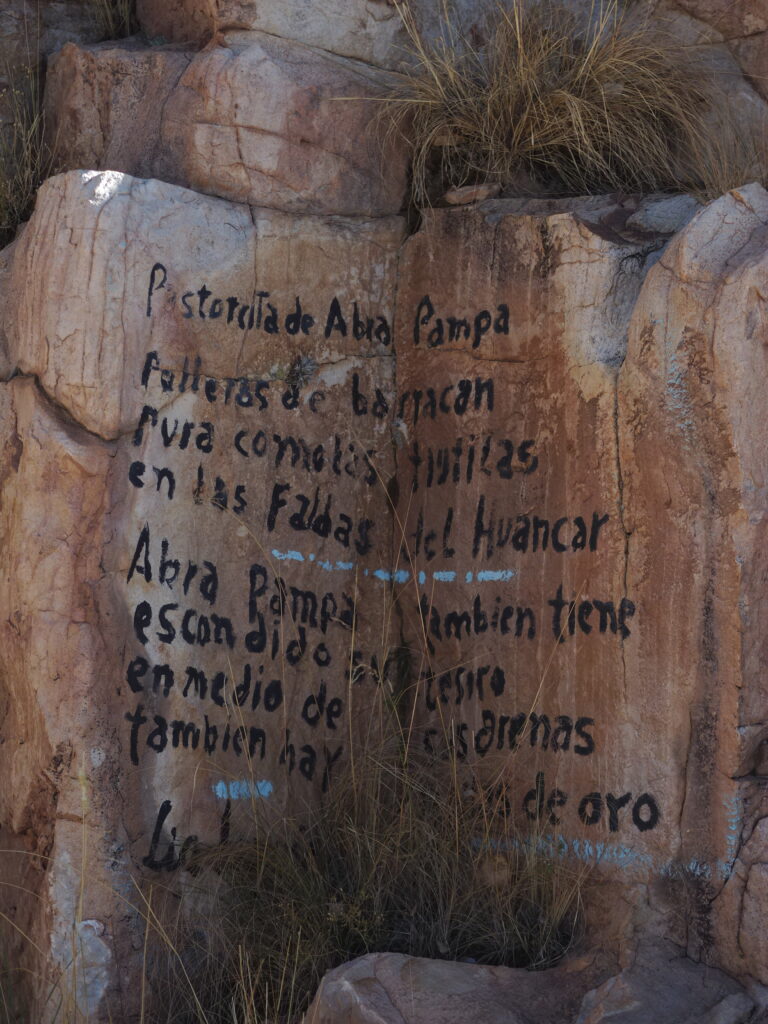 Pastorcita de Abra Pampa
Polleras de barracan
Pura como las
en las Faldas del Huancar
Abra Pampa tambien tiene
escondido su tesiro
en medio de sus arenas
tambien hay de oro